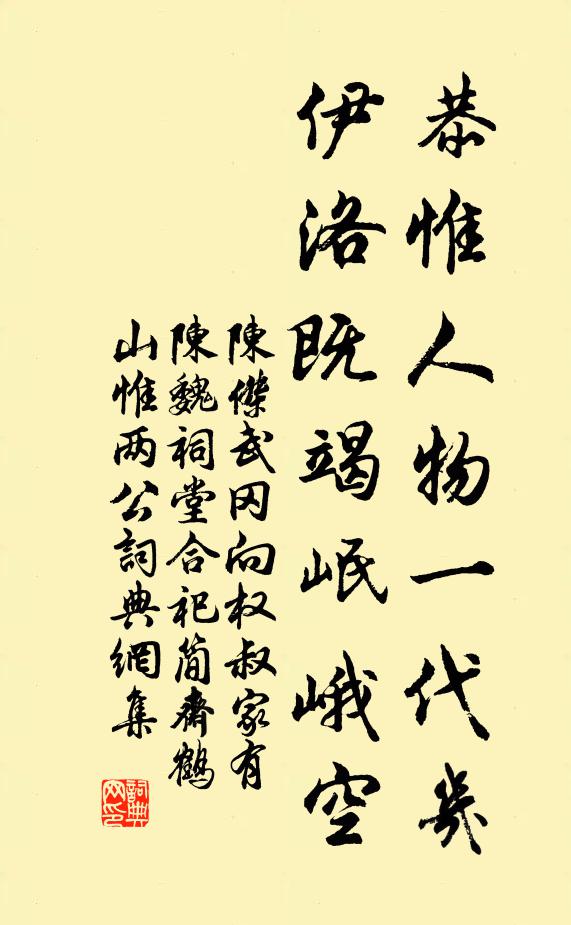 恭惟人物一代几
伊洛既竭岷峨空
陳傑武冈向权叔家有
陳魏祠堂合祀简齋鶴
山惟两公詞典網集
詞典网印